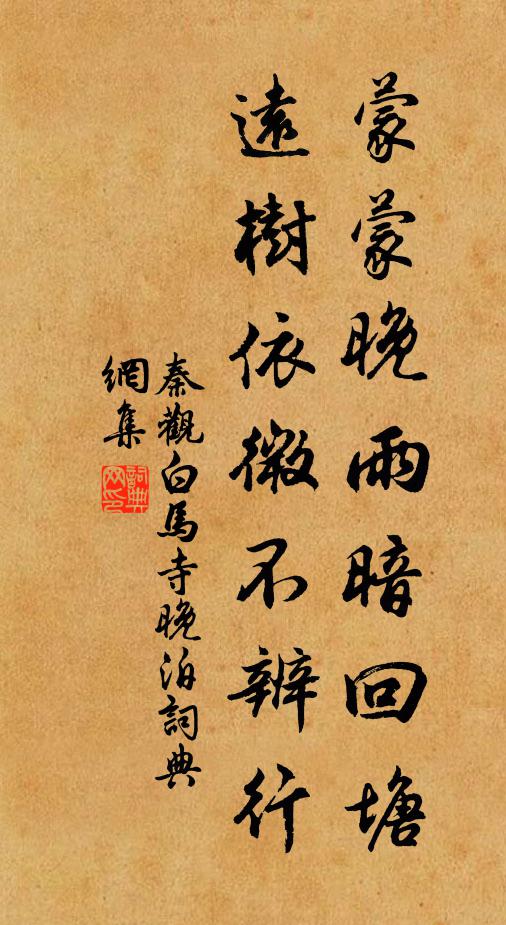 蒙蒙晚雨暗回塘
遠樹依微不辨行
秦觀白馬寺晚泊詞典
網集
詞典
网印